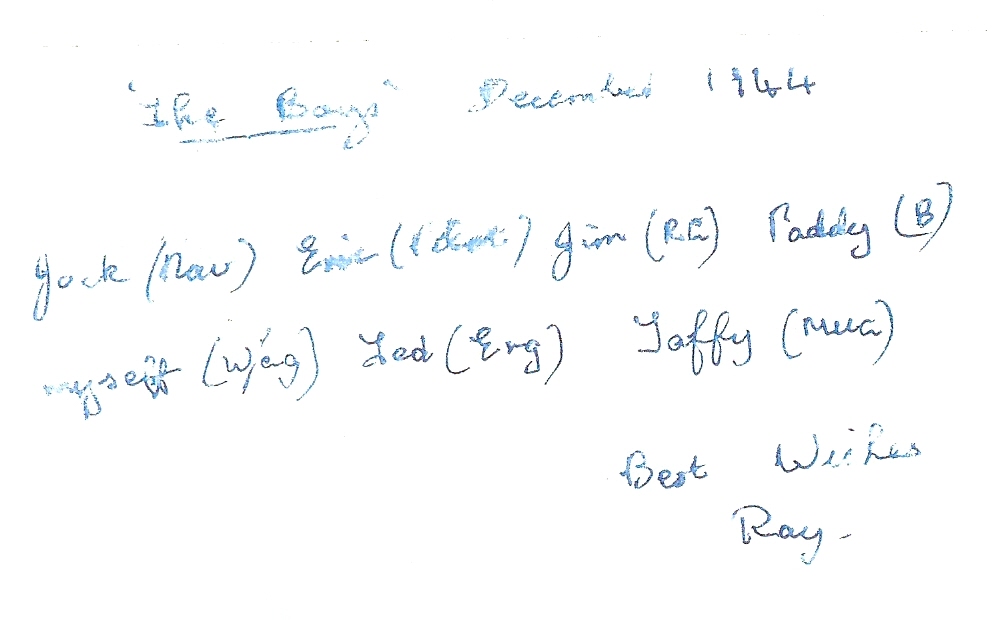 "The Boys" December 1944
Jock (Nav) Eric Jim (RG) Paddy (B)
myself (W/ag) Ted (Eng) Taffy (MUG)
Best Wishes
Ray -